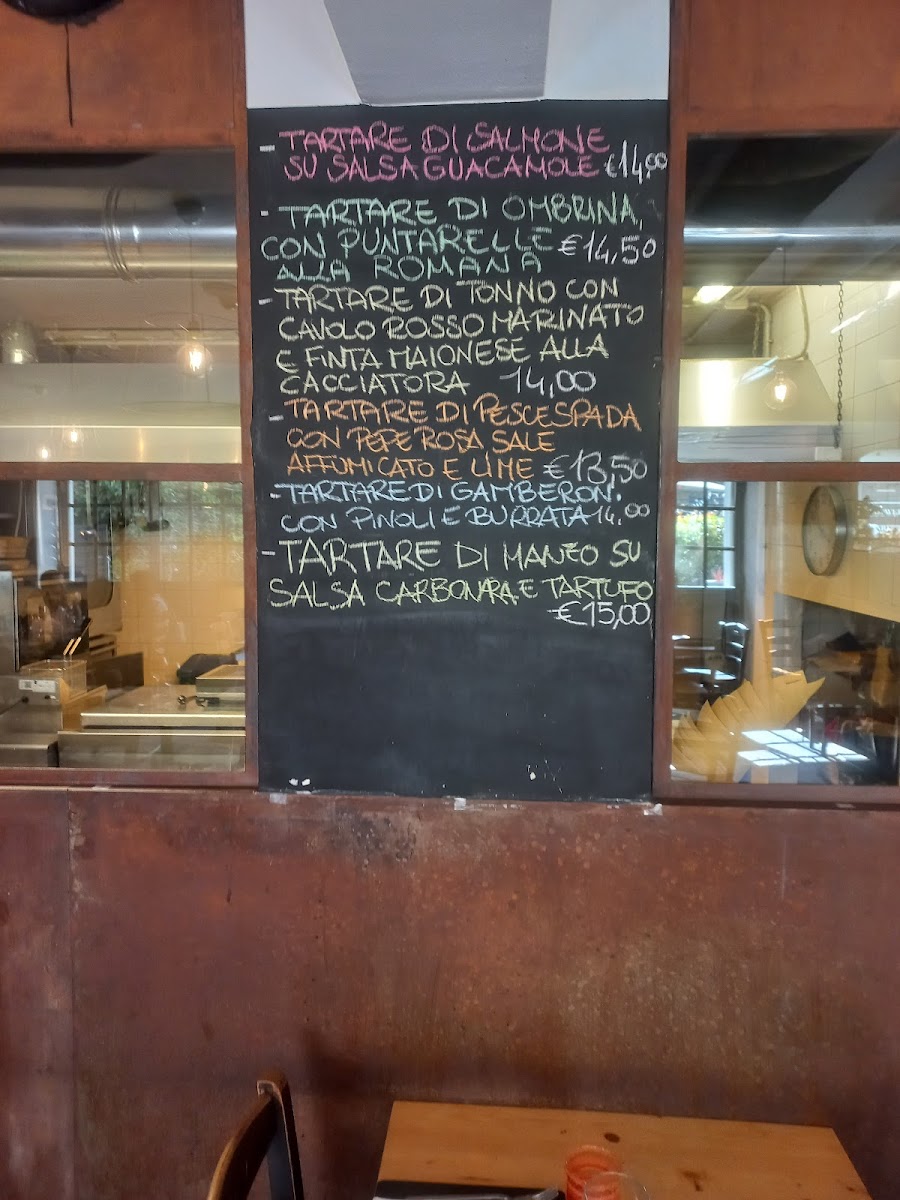 - TARTARE DI SALMONE
SU SALSA GUACAMOLE €14,00
- TARTARE DI OMBRINA,
CON PUNTARELLE €14,50
ALLA ROMANA
- TARTARE DI TONNO CON
CAVOLO ROSSO MARINATO
E FINTA MAIONESE ALLA
CACCIATORA 14,00
- TARTARE DI PESCE SPADA
CON PEPE ROSA SALE
AFFUMICATO E LIME €13,50
- TARTARE DI GAMBERONI
CON PINOLI E BURRATA 14,00
- TARTARE DI MANZO SU
SALSA CARBONARA E TARTUFO
€15,00